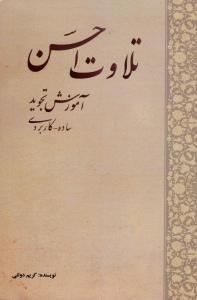 تلاوت احسن
آموزش تجوید
ساده-کاربردی
نویسنده: کریم دولتی